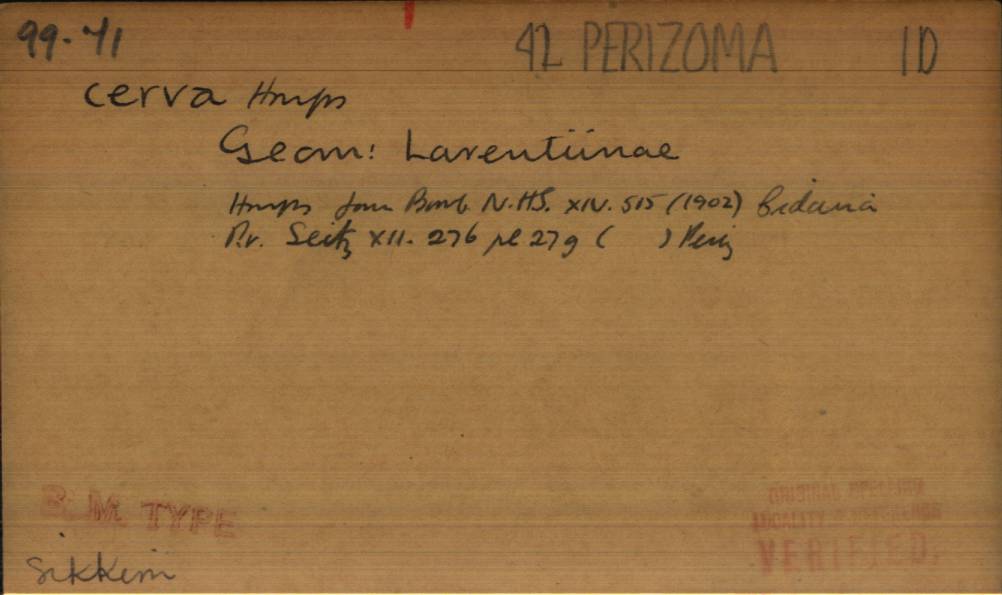 99-71 42 PERIZOMA 10
cerva Hmps
Geom: Larentiinae
Hmps Journ Bomb. N.HS. XIV. 515 (1902) Cidaria
Pr. Seitz XII. 276 pl 27g ( ) Periz
B. M. TYPE
ORIGINAL SPELLING
LOCALITY & REFERENCE
VERIFIED.
Sikkim